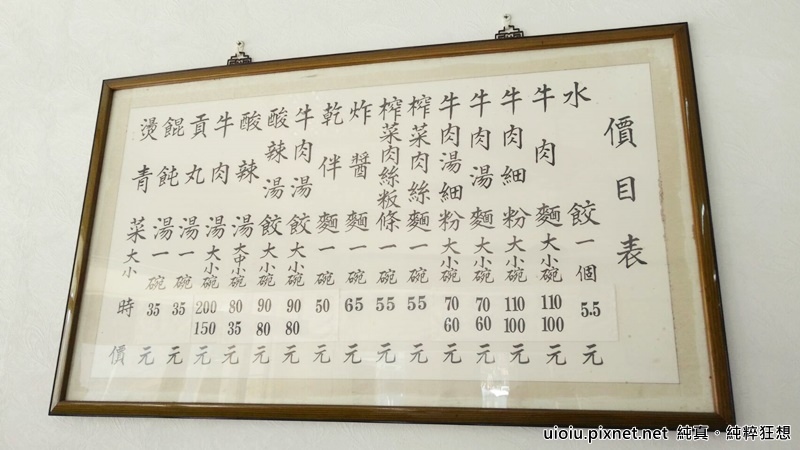 價目表
水餃一個 5.5 元
牛肉麵大小碗 110 100 元
牛肉細粉大小碗 110 100 元
牛肉湯麵大小碗 70 60 元
牛肉湯細粉大小碗 70 60 元
榨菜肉絲麵一碗 55 元
榨菜肉絲粄條一碗 55 元
炸醬麵一碗 65 元
乾伴麵一碗 50 元
牛肉湯餃大小碗 90 80 元
酸辣湯餃大小碗 90 80 元
酸辣湯大中小碗 80 35 元
牛肉湯大小碗 200 150 元
貢丸湯一碗 35 元
餛飩湯一碗 35 元
燙青菜大小 時價
uioiu.pixnet.net 純真。純粹狂想